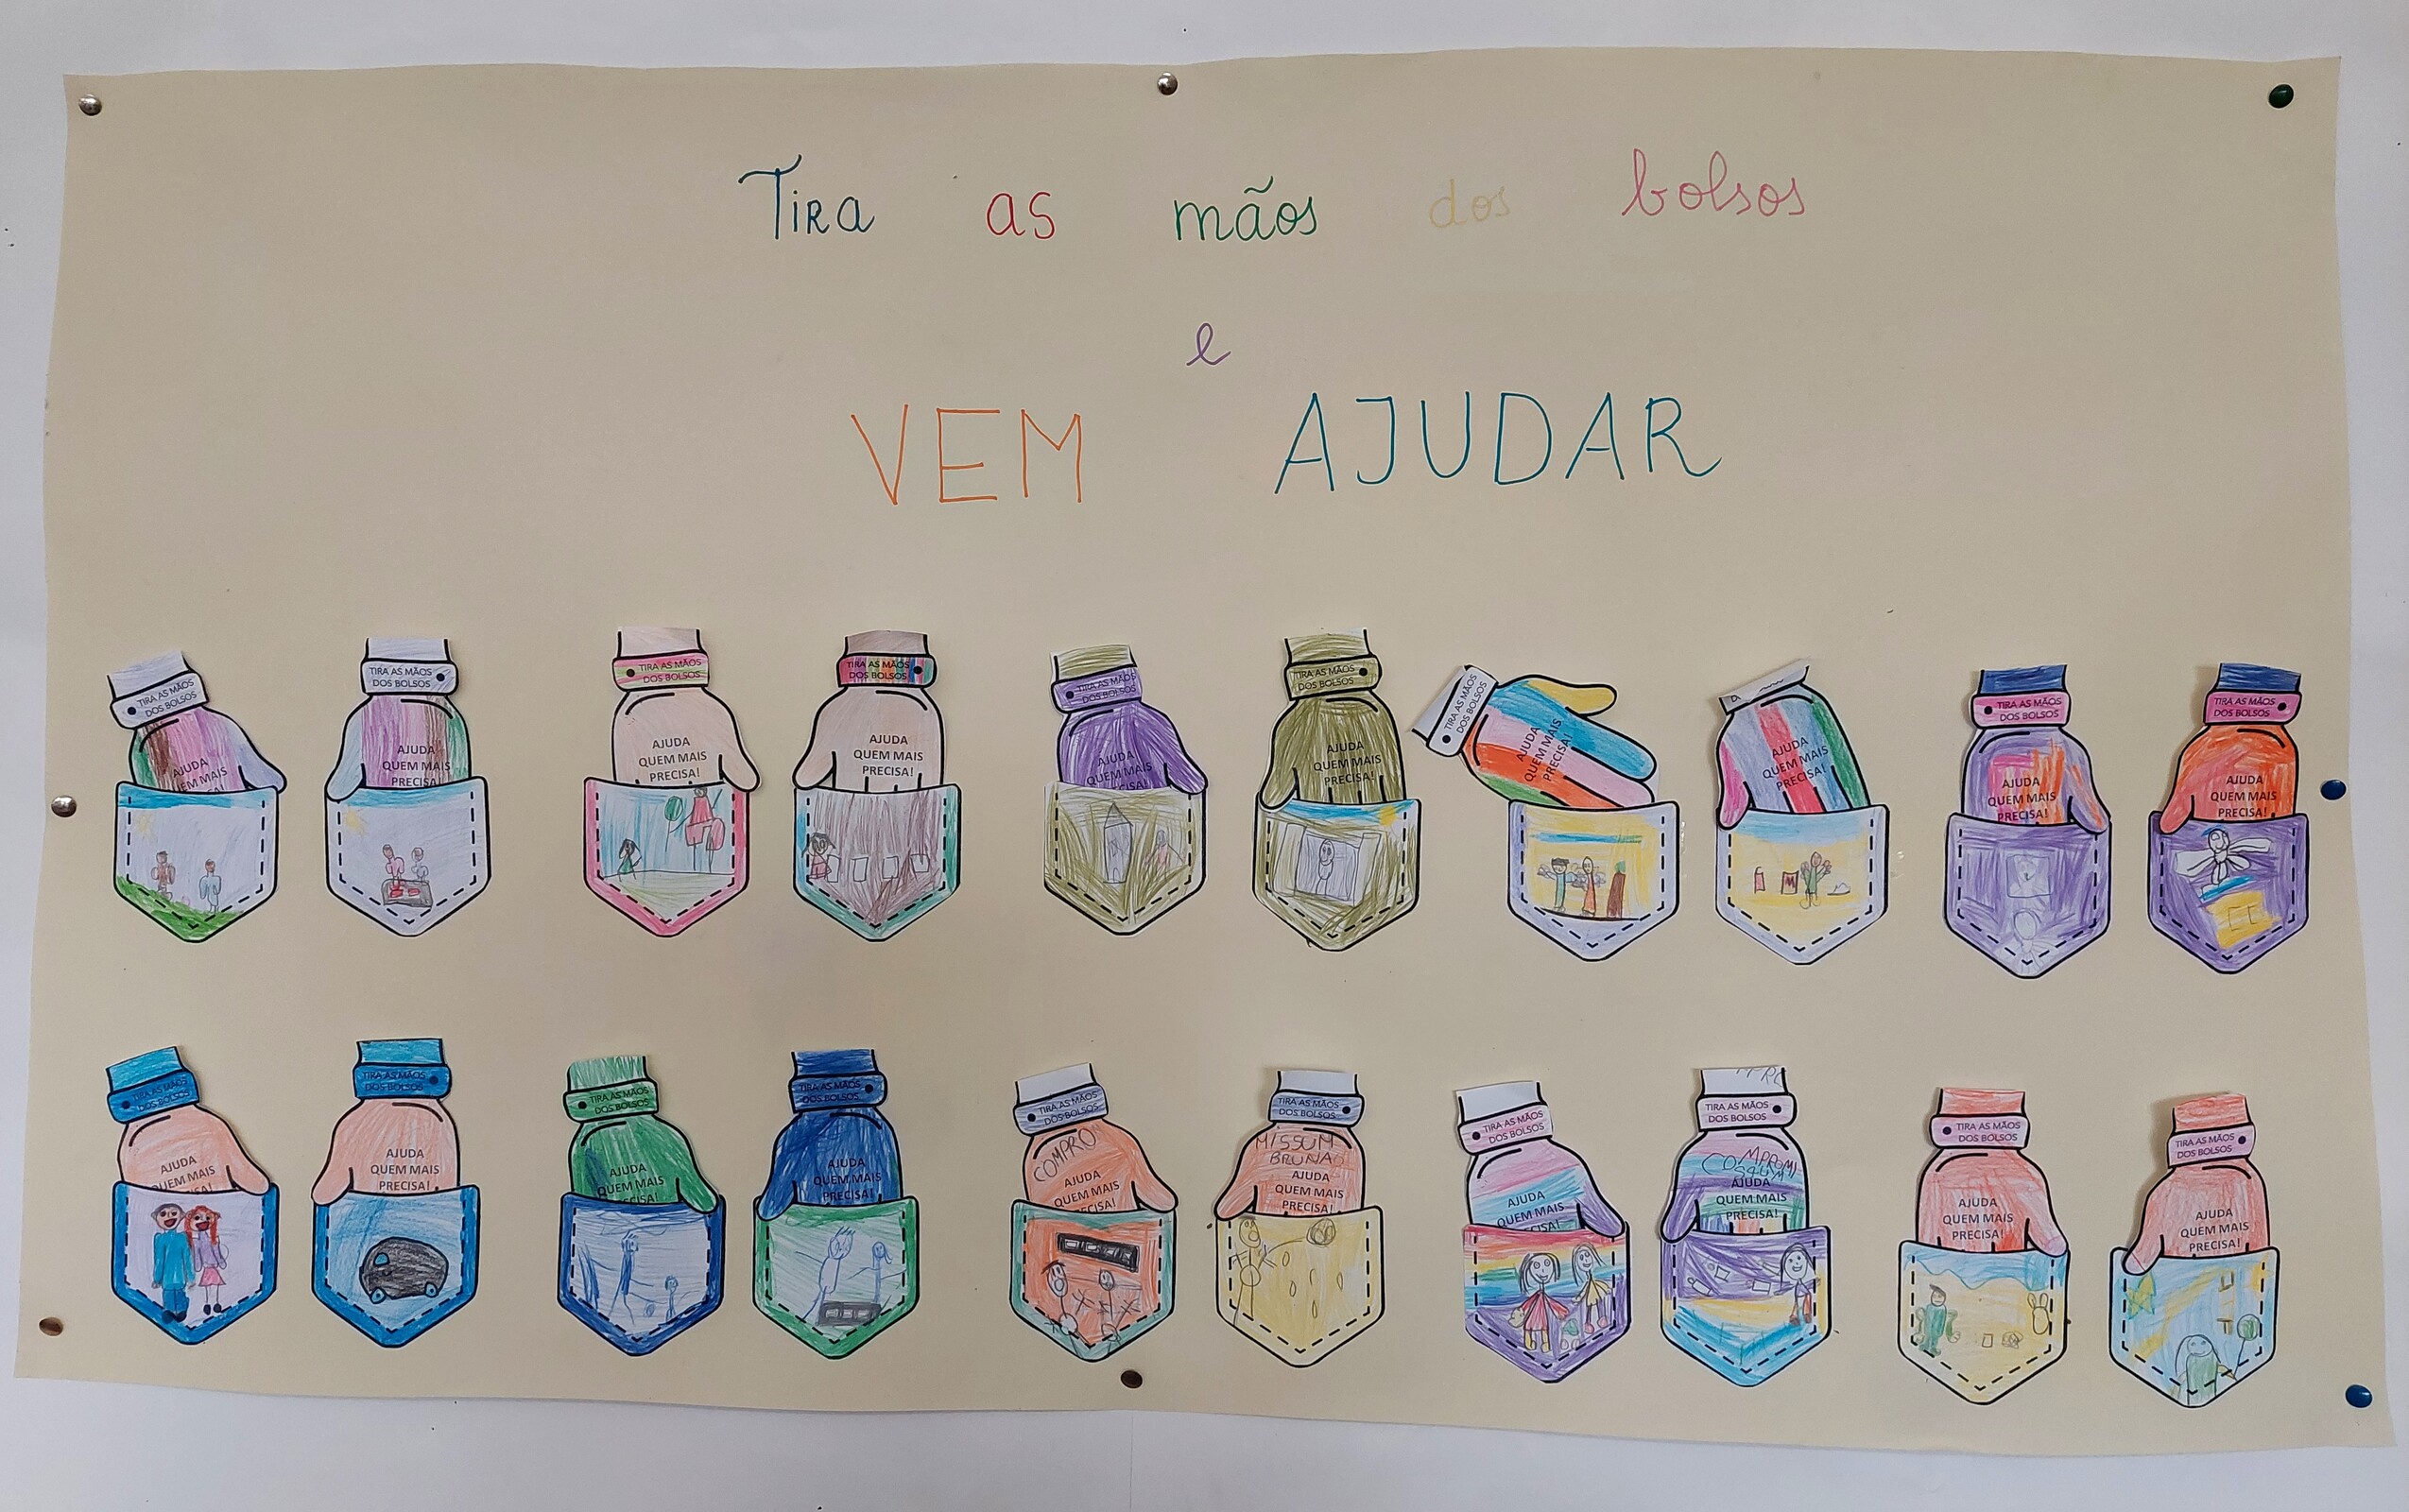 Tira as mãos dos bolsos
e
VEM AJUDAR
TIRA AS MÃOS
DOS BOLSOS
AJUDA
QUEM MAIS
TIRA AS MÃOS
DOS BOLSOS
AJUDA
QUEM MAIS
PRECISA!
TIRA AS MÃOS
DOS BOLSOS
AJUDA
QUEM MAIS
PRECISA!
TIRA AS MÃOS
DOS BOLSOS
AJUDA
QUEM MAIS
PRECISA!
TIRA AS MÃOS
DOS BOLSOS
AJUDA
QUEM MAIS
TIRA AS MÃOS
DOS BOLSOS
AJUDA
QUEM MAIS
PRECISA!
TIRA AS MÃOS
DOS BOLSOS
AJUDA
QUEM MAIS
PRECISA!
AJUDA
QUEM MAIS
PRECISA!
TIRA AS MÃOS
DOS BOLSOS
AJUDA
QUEM MAIS
PRECISA!
TIRA AS MÃOS
DOS BOLSOS
AJUDA
QUEM MAIS
PRECISA!
TIRA AS MÃOS
DOS BOLSOS
AJUDA
QUEM MAIS
TIRA AS MÃOS
DOS BOLSOS
AJUDA
QUEM MAIS
PRECISA!
TIRA AS MÃOS
DOS BOLSOS
AJUDA
QUEM MAIS
TIRA AS MÃOS
DOS BOLSOS
AJUDA
QUEM MAIS
PRECISA!
TIRA AS MÃOS
DOS BOLSOS
COMPRO
AJUDA
QUEM MAIS
TIRA AS MÃOS
DOS BOLSOS
MISSUM
BRUNA
AJUDA
QUEM MAIS
PRECISA!
TIRA AS MÃOS
DOS BOLSOS
AJUDA
QUEM MAIS
TIRA AS MÃOS
DOS BOLSOS
COMPROMI
SSUM
AJUDA
QUEM MAIS
PRECISA!
TIRA AS MÃOS
DOS BOLSOS
AJUDA
QUEM MAIS
PRECISA!
TIRA AS MÃOS
DOS BOLSOS
AJUDA
QUEM MAIS
PRECISA!